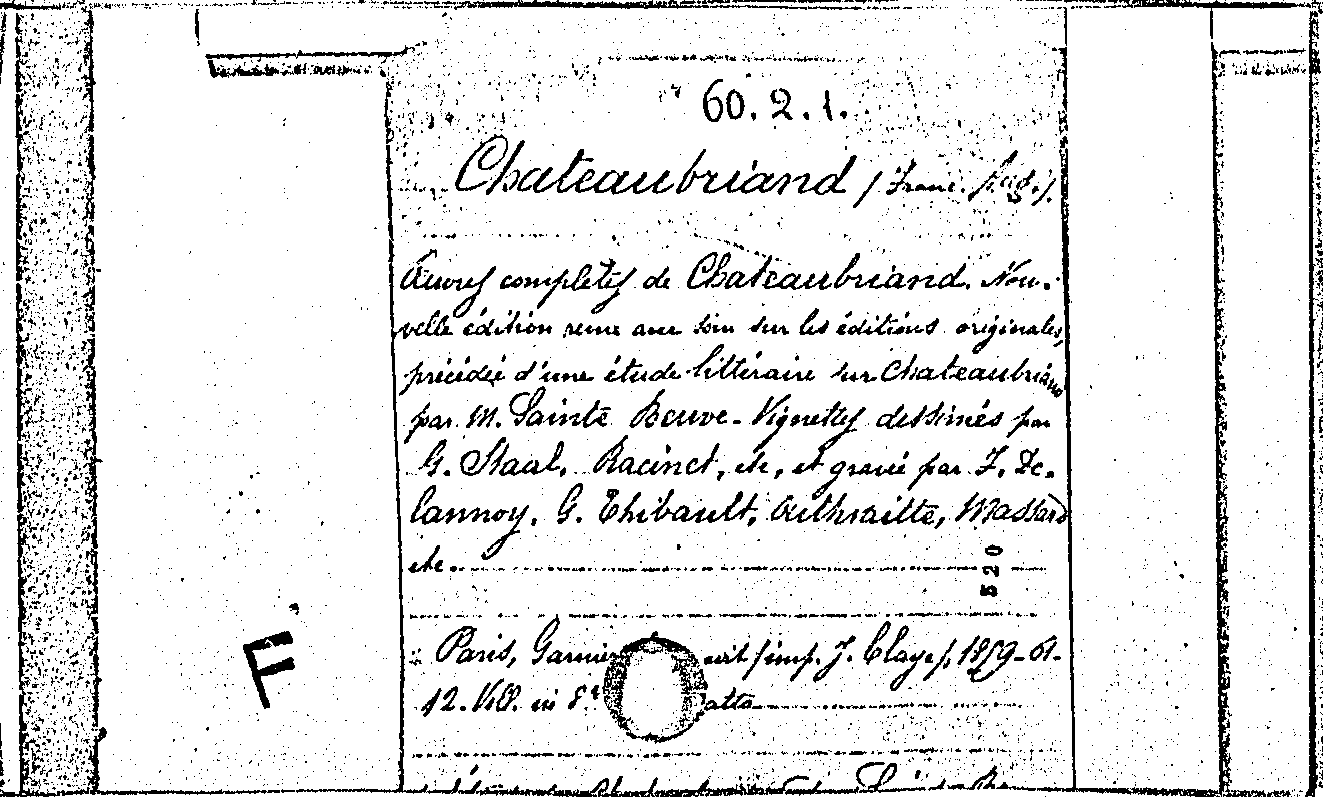 60.2.1.
Chateaubriand (Franc. Aug.).
Œuvres complètes de Chateaubriand. Nou-
velle édition revue avec soin sur les éditions originales,
précédée d'une étude littéraire sur Chateaubriand
par M. Sainte Beuve - Vignettes dessinés par
G. Staal, Racinet, etc, et gravé par F. De-
lannoy, G. Thibault, Outhwaitte, Massard
etc.
520
Paris, Garnier edit (imp. J. Claye), 1859-61-
12. Vol. in 8º
F